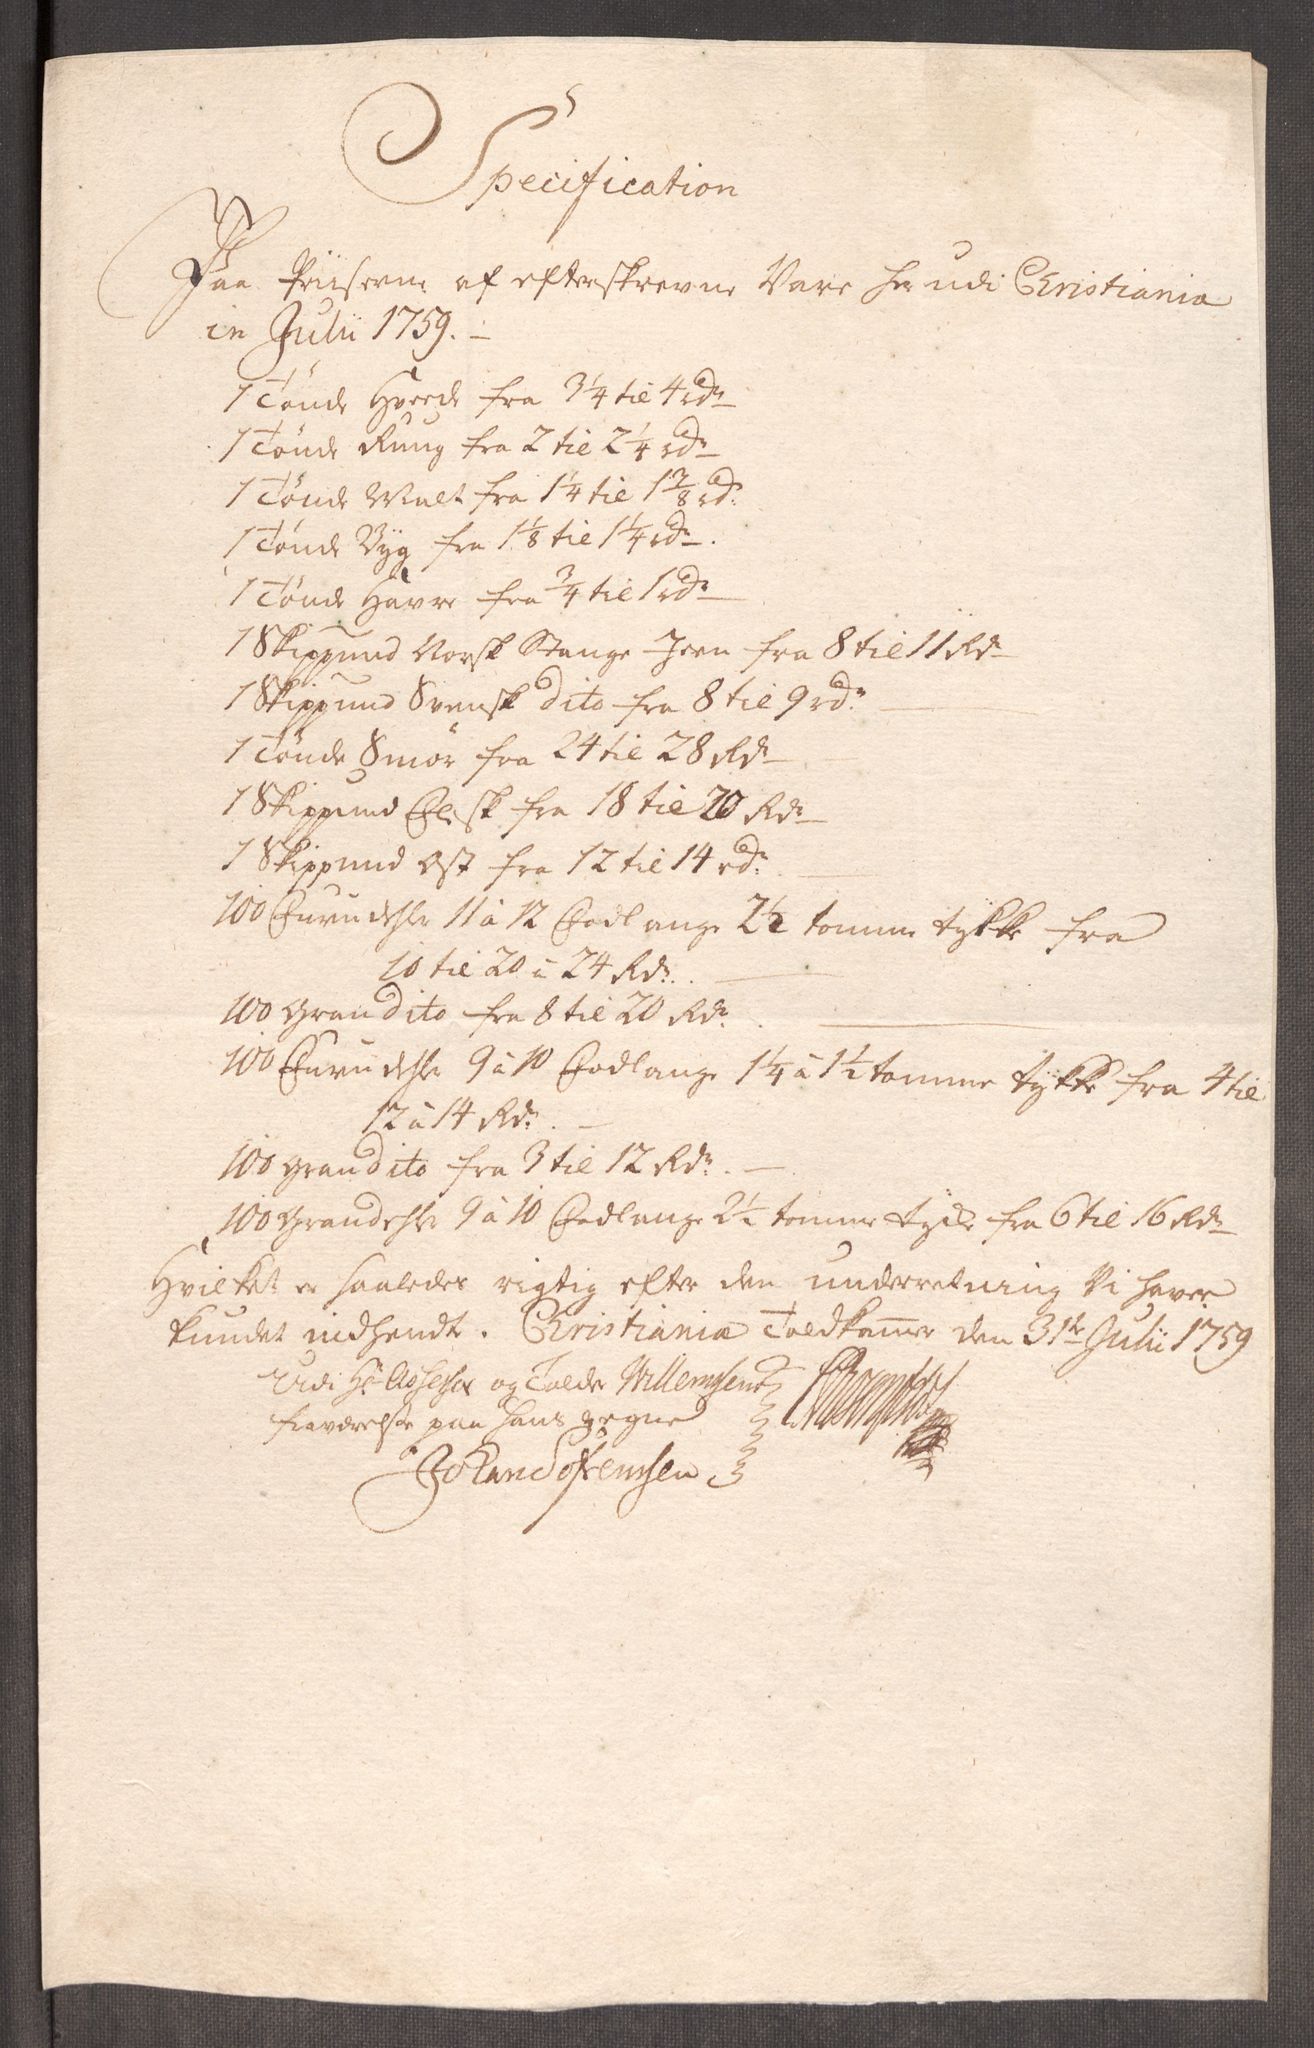 Specification
Paa Priiserne af efterskrevne Vare her udi Christiania
in Julii 1759. –
1 Tönde Hveede fra 3¼ til 4 rdr
1 Tönde Rung fra 2 til 2¼ rdr
1 Tönde Malt fra 1¼ til 1⅜ rdr
1 Tönde Byg fra 1⅛ til 1¼ rdr.
1 Tönde Havre fra ¾ til 1 rdr
1 Skippund Norsk Stange Jern fra 8 til 11 Rdr
1 Skippund Svensk dito fra 8 til 9 rdr
1 Tönde Smör fra 24 til 28 Rdr
1 Skippund Flesk fra 18 til 20 Rdr
1 Skippund Ost fra 12 til 14 rdr
100 Furudehle 11 à 12 Fodlange 2½ tomme tykke fra
10 til 20 à 24 Rdr.
100 Gran dito fra 8 til 20 Rdr.
100 Furudehle 9 à 10 Fodlange 1¼ à 1½ tomme tykke fra 4 til
12 à 14 Rdr.
100 Gran dito fra 3 til 12 Rdr.
100 Grandehle 9 à 10 Fodlange 2½ tomme fra 6 til 16 Rdr
Hvilket er saaledes rigtig efter den underretning Vi haver
kundet indhendt. Christiania Toldkammer den 31te Julii 1759
Udi Hr Assessor og Tolder Willemsens
fraværelse paa hans vegne
Johan